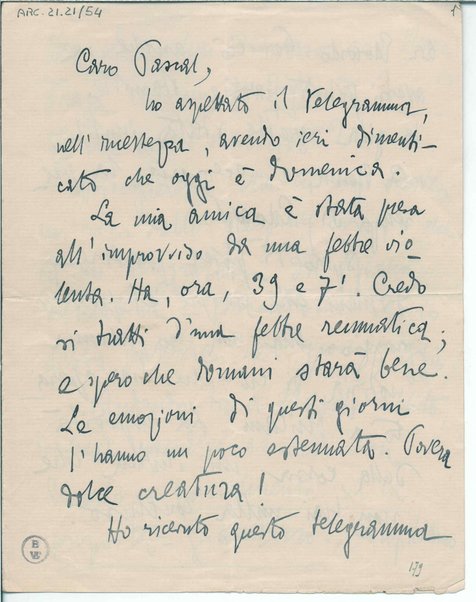 ARC.21.21/54
1
Caro Pascal,
ho aspettato il telegramma,
nell'incertezza, avendo ieri dimenti-
cato che oggi è domenica.
La mia amica è stata presa
all'improvviso da una febre vio-
lenta. Ha, ora, 39 e 7'. Credo
si tratti d'una febbre reumatica;
e spero che domani starà bene.
Le emozioni di questi giorni
l'hanno un poco estenuata. Povera
dolce creatura!
Ho ricevuto questo telegramma
179